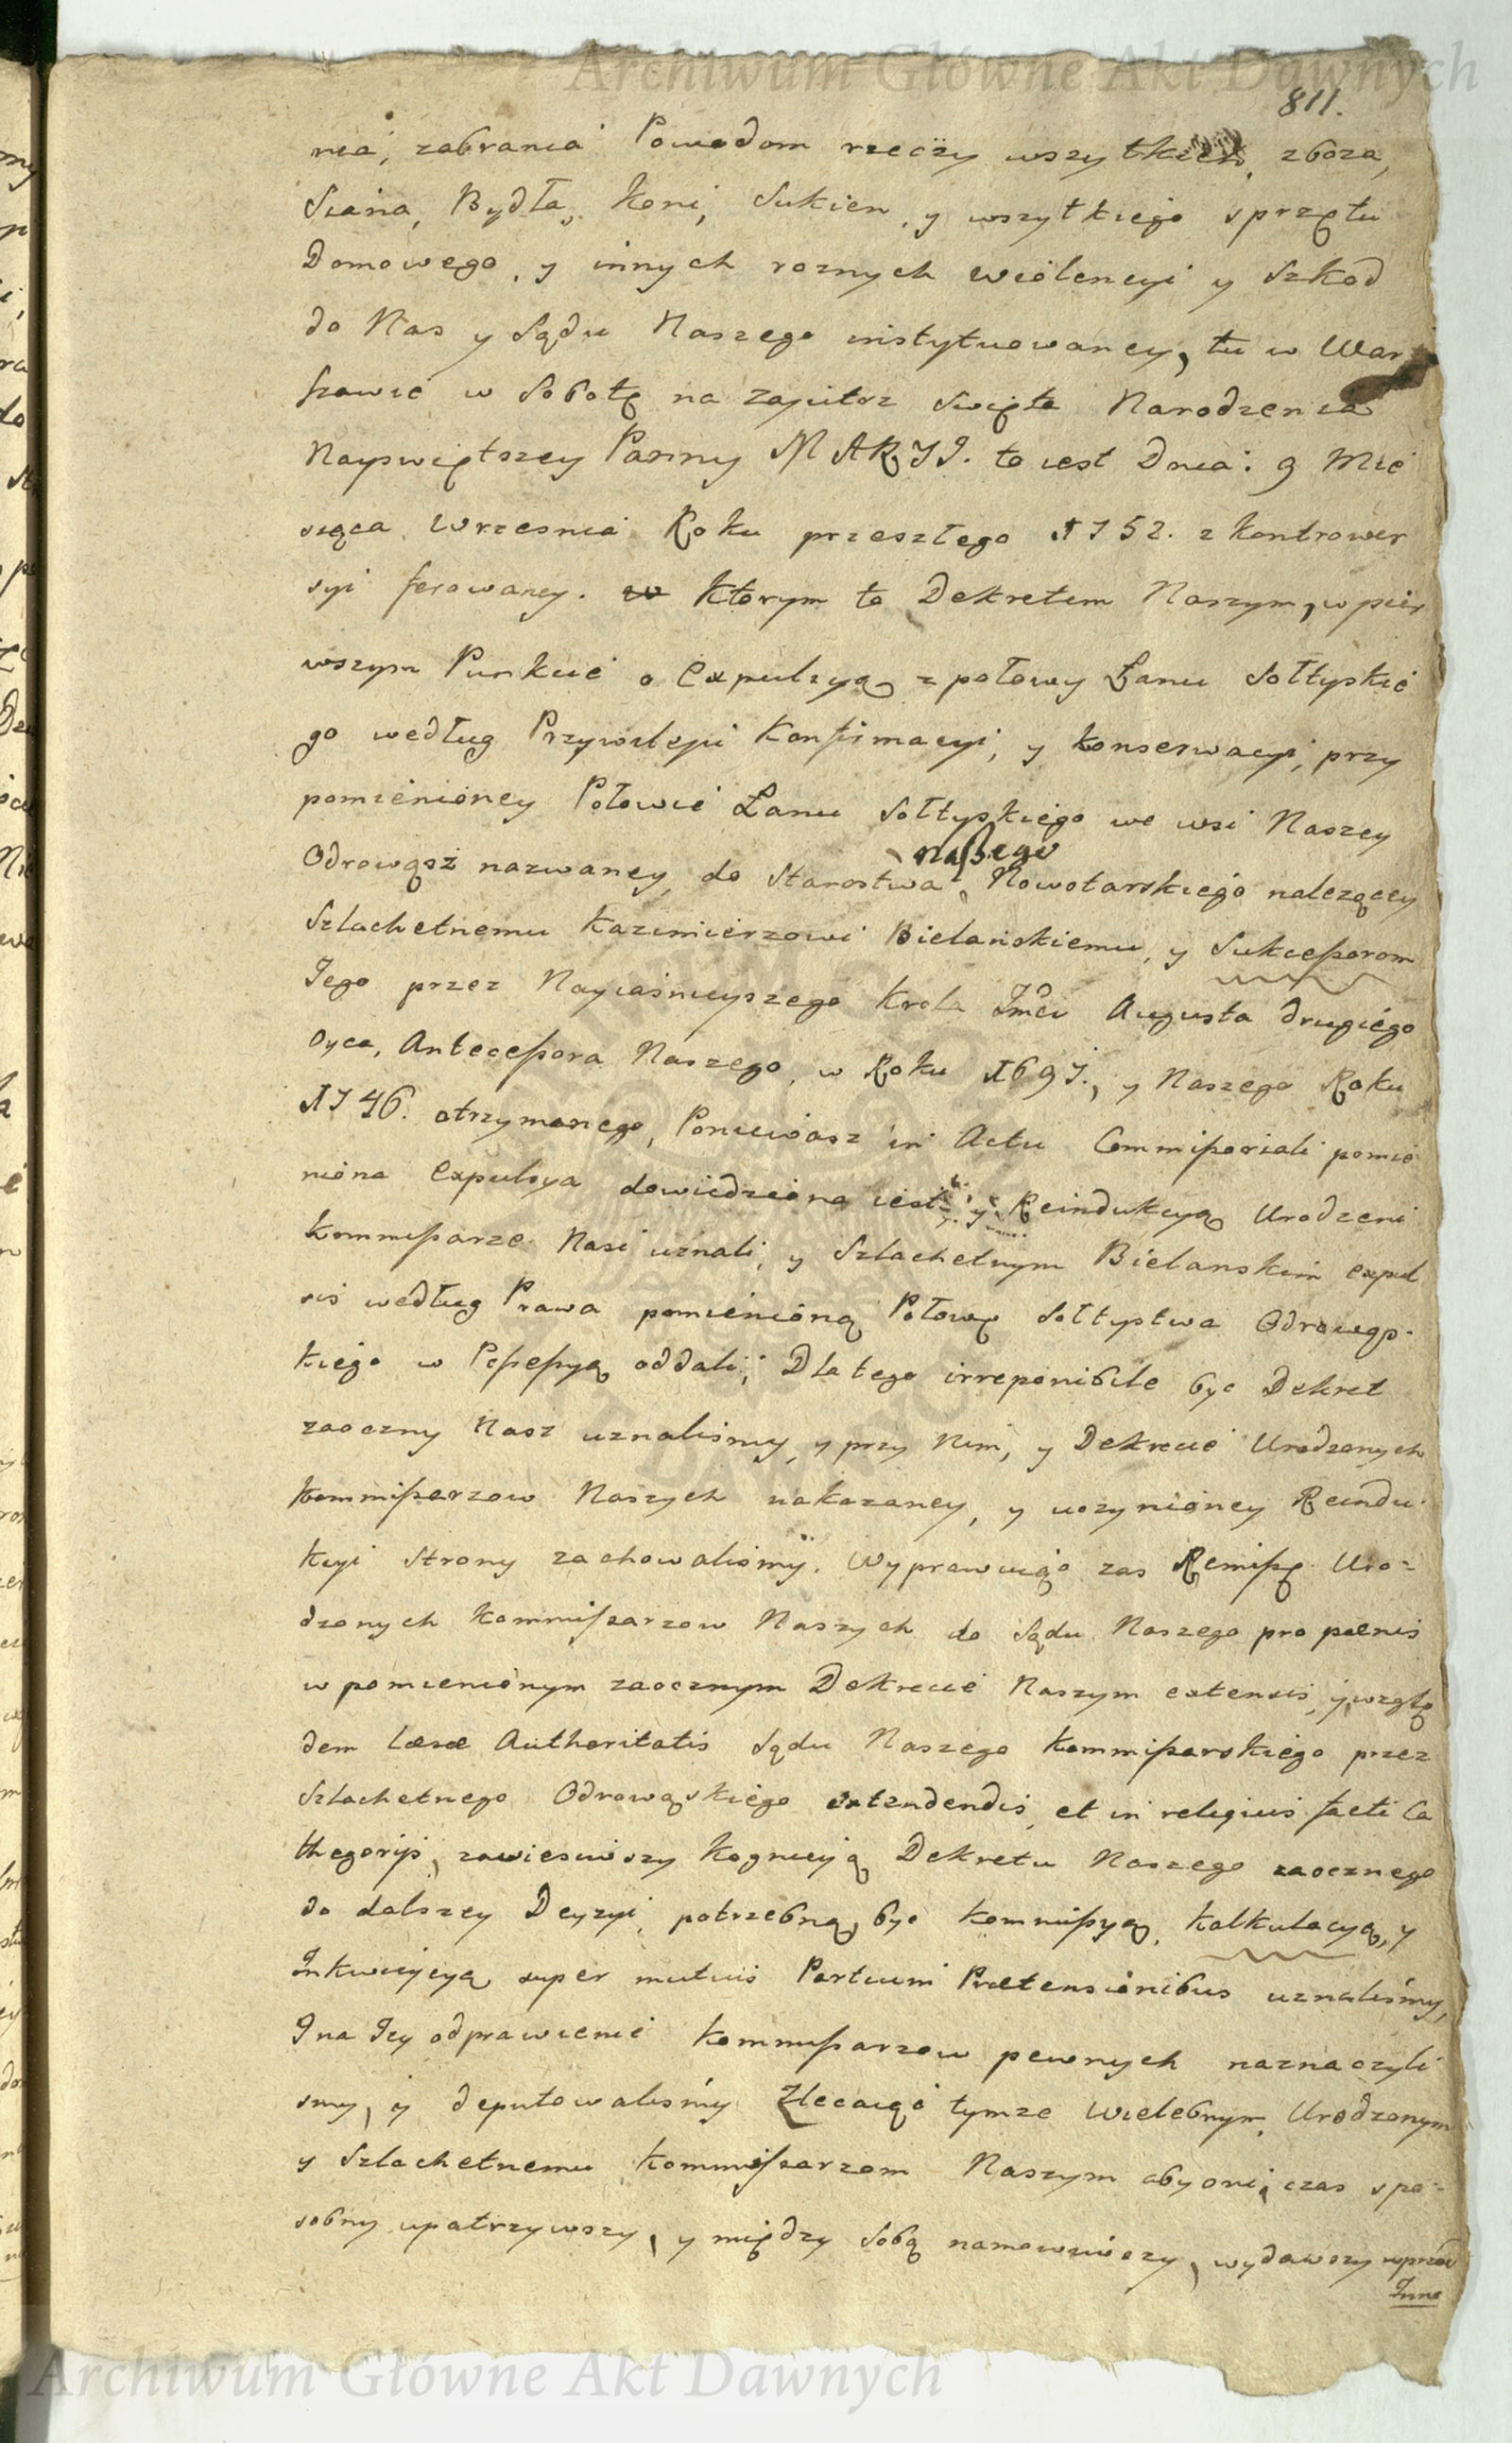 Archiwum Główne Akt Dawnych
811.
nia, zabrania Powodom rzeczy wszytkich, zboza,
Siana, Bydła, Koni, Sukien, y wszytkiego sprzętu
Domowego, y innych roznych wiolencyi y Szkod
do Nas y Sądu Naszego instytuowaney, tu w War
szawie w Sobotę na zajutrz Swięta Narodzenia
Nayswiętszey Panny MARYI. to iest Dnia: 9 Mie
siąca Wrzesnia Roku przeszłego 1752. z Kontrower
syi ferowaney. Ktorym to Dekretem Naszym, w pier
wszym Punkcie o Expulsyą z połowy Łanu Sołtyskie
go według Przywileju Konfirmacyi, y Konserwacyi, przy
pomienioney Połowie Łanu Sołtyskiego we wsi Naszey
Odrowąsż nazwaney, do Starostwa naszego Nowotarskiego nalezącey
Szlachetnemu Kazimierzowi Bielanskiemu, y Sukcessorom
Jego przez Nayiasnieyszego Krola Jmci Augusta drugiego
Oyca, Antecessora Naszego, w Roku 1697., y Naszego Roku
1746. otrzymanego, Poniewasz in Actu Commissoriali pomie
niona Expulsya dowiedziona iest y Reindukcyą Urodzeni
Kommissarze Nasi uznali, y Szlachetnym Bielanskim expul
sis według Prawa pomienioną Połowę Sołtystwa Odrowąs-
kiego w Possessyą oddali; Dla tego irreponibile byc Dekret
zaoczny Nasz uznalismy, y przy Nim, y Dekrecie Urodzonych
Kommissarzow Naszych nakazaney, y uczynioney Reindu-
kcyi Strony zachowalismy. Wyprawuiąc zas Remissę Uro-
dzonych Kommissarzow Naszych do Sądu Naszego pro poenis
w pomienionym zaocznym Dekrecie Naszym extensis, y wzglę
dem Læsæ Authoritatis Sądu Naszego Kommissarskiego przez
Szlachetnego Odrowąskiego extendendis, et in reliquis facti Ca
thegoriis, zawiesiwszy Kognicyą Dekretu Naszego zaocznego
do dalszey Decyzyi, potrzebną byc Kommissyą, Kalkulacyą, y
Inkwizycyą super mutuis Partium Prætensionibus uznalismy,
I na Jey odprawienie Kommissarzow pewnych naznaczyli
smy, y deputowalismy Zlecaiąc tymze Wielebnym, Urodzonym
y Szlachetnemu Kommissarzom Naszym aby oni, czas spo-
sobny upatrzywszy, y między Sobą namowiwszy, wydawszy wprzod
Inne
Archiwum Główne Akt Dawnych